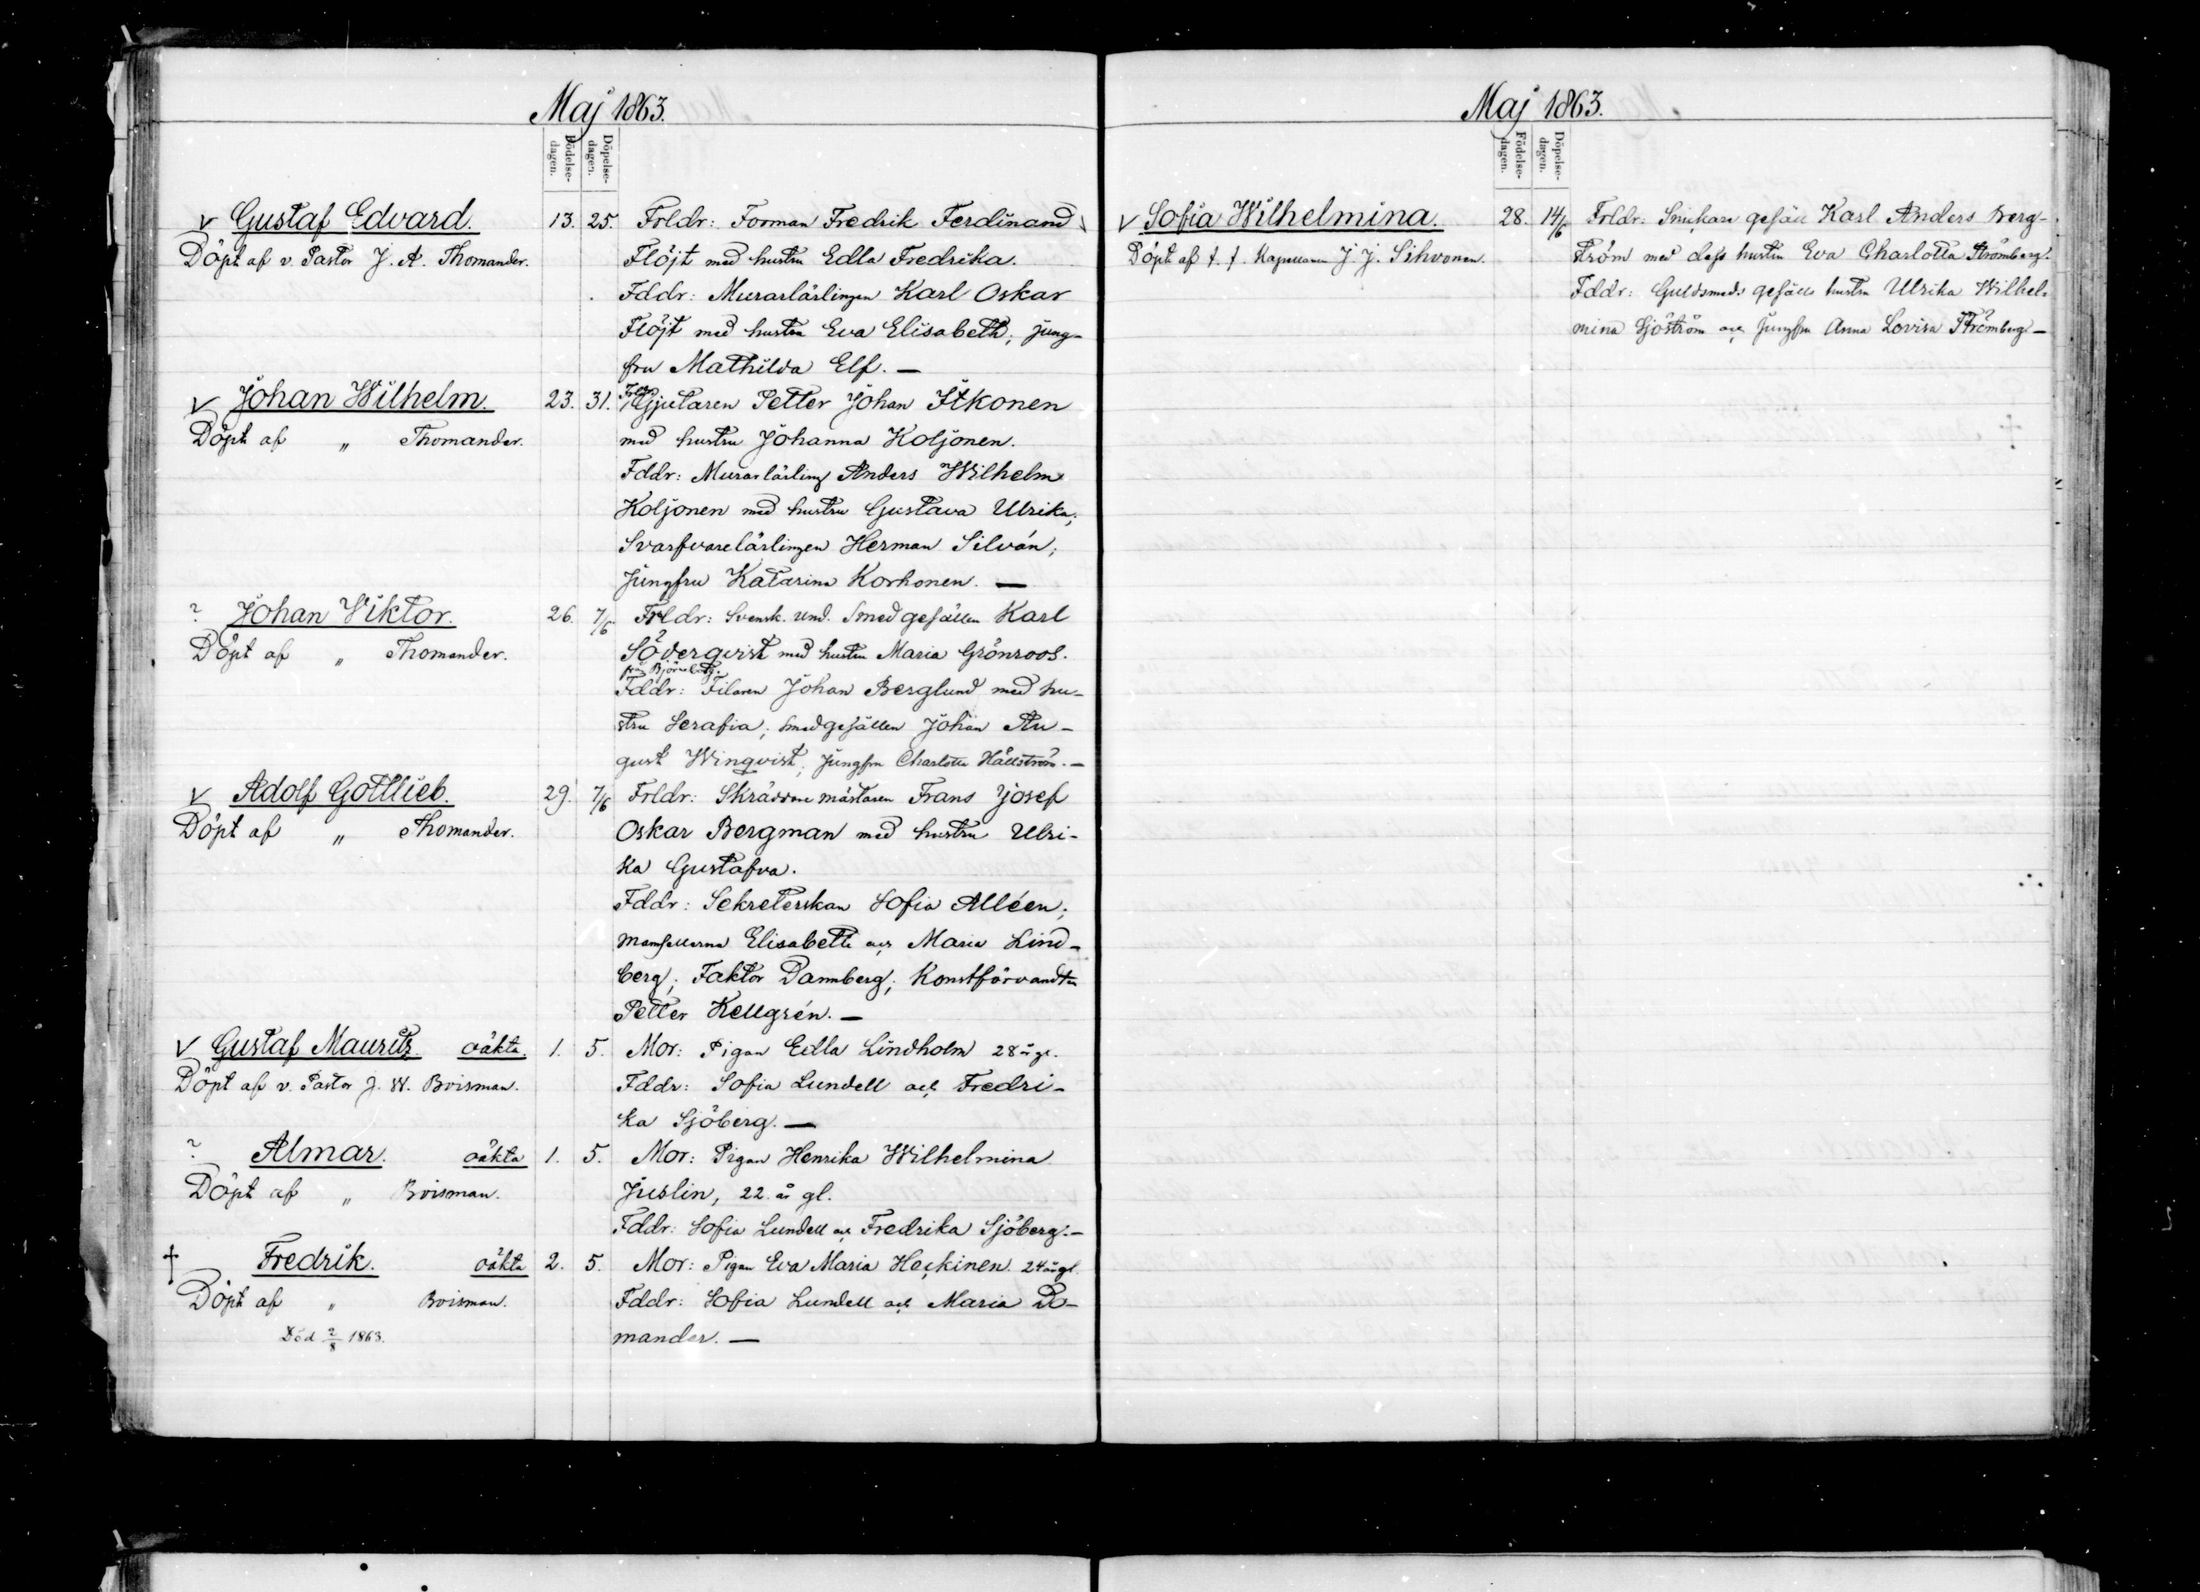 Maj 1863.
Födelse-dagen.
Döpelse-dagen.
v Gustaf Edvard. 13. 25. Frldr: Forman Fredrik Ferdinand
Döpt af v. Pastor J. A. Thomander. Flöjt med hustru Edla Fredrika.
Fddr: Murarlärlingen Karl Oskar
Flöjt med hustru Eva Elisabeth; jung-
fru Mathilda Elf. —
v Johan Wilhelm. 23. 31. Gjutaren Petter Johan Itkonen
Döpt af " Thomander. med hustru Johanna Koljonen.
Fddr: Murarlärling Anders Wilhelm
Koljonen med hustru Gustava Ulrika;
Svarfvarelärlingen Herman Silván;
Jungfru Katarina Korhonen. —
? Johan Viktor. 26. 7/6 Frldr: Svensk. und. Smedgesällen Karl
Döpt af " Thomander. Söderqvist med hustru Maria Grönroos.
från Björneborg.
Fddr: Filaren Johan Berglund med hu-
stru Serafia; smedgesällen Johan Au-
gust Winqvist; Jungfru Charlotta Hällström. —
v Adolf Gottlieb. 29. 7/6 Frldr: Skräddaremästaren Frans Josef
Döpt af " Thomander. Oskar Bergman med hustru Ulri-
ka Gustafva.
Fddr: Sekreterskan Sofia Alléen;
mamsellerna Elisabeth och Maria Lind-
berg; Faktor Dannberg; Konstförvandten
Petter Kellgrén. —
v Gustaf Mauritz. oäkta. 1. 5. Mor: Pigan Edla Lindholm 28 år gl.
Döpt af v. Pastor J. W. Boisman. Fddr: Sofia Lundell och Fredri-
ka Sjöberg. —
? Almar. oäkta 1. 5. Mor: Pigan Henrika Wilhelmina
Döpt af " Boisman. Juslin, 22 år gl.
Fddr: Sofia Lundell och Fredrika Sjöberg. —
† Fredrik. oäkta 2. 5. Mor: Pigan Eva Maria Heckinen. 24 år gl.
Döpt af " Boisman. Fddr: Sofia Lundell och Maria Do-
Död 2/8 1863. mander. —
Maj 1863.
Födelse-dagen.
Döpelse-dagen.
v Sofia Wilhelmina. 28. 14/6 Frldr: Snickare gesäll Karl Anders Berg-
Döpt af t. f. Kapellanen J. J. Sihvonen. ström med dess hustru Eva Charlotta Strömberg.
Fddr: Guldsmeds gesälls hustru Ulrika Wilhel-
mina Sjöström och Jungfru Anna Lovisa Strömberg —